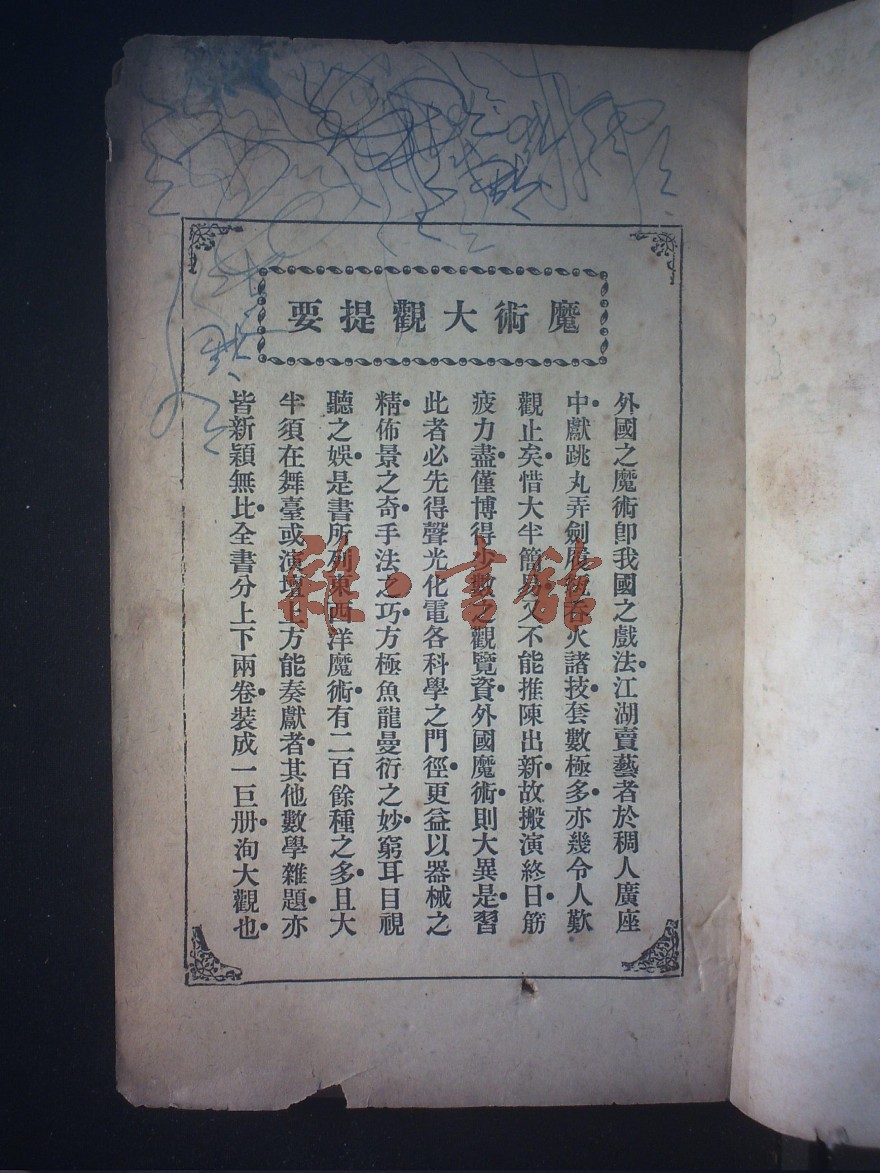 魔術大觀提要
外國之魔術卽我國之戲法•江湖賣藝者於稠人廣座
中•獻跳丸弄劍屐術吞火諸技•套數極多•亦幾令人歎
觀止矣•惜大半簡易•又不能推陳出新•故搬演終日•筋
疲力盡•僅博得少數之觀覽資•外國魔術•則大異是•習
此者必先得聲光化電各科學之門徑•更益以器械之
精•佈景之奇•手法之巧•方極魚龍曼衍之妙•窮耳目視
聽之娛•是書所列東西洋魔術•有二百餘種之多•且大
半須在舞臺或演壇上方能奏獻者•其他數學雜題•亦
皆新穎無比•全書分上下兩卷•裝成一巨册•洵大觀也•
雜·書館